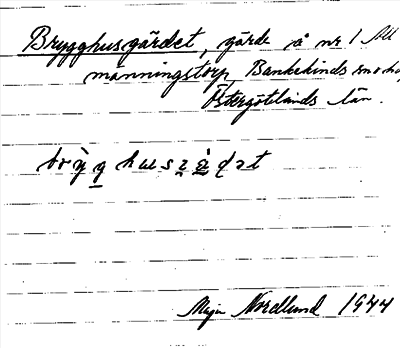 Brygghusgärdet, gärde å nr 1 All
männingstorp Bankekinds sn o hd
Östergötlands län.
Maja Nordlund 1944